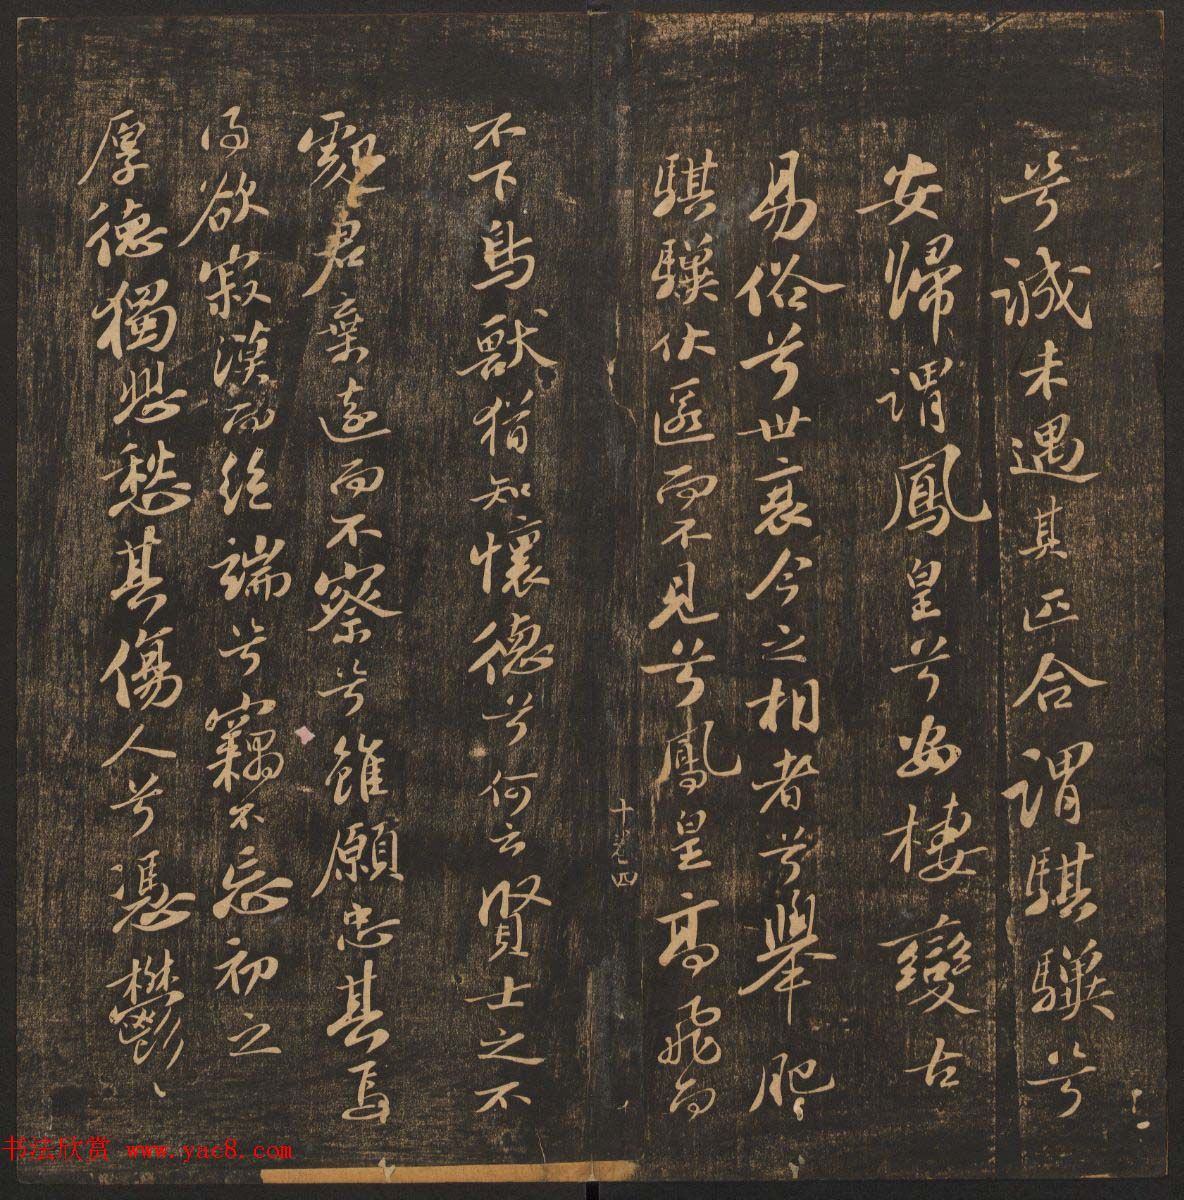 兮誠未遇其匹合謂騏驥兮
安歸謂鳳皇兮安棲變古
易俗兮世衰今之相者兮舉肥
騏驥伏匿而不見兮鳳皇高飛而
十卷四
不下鳥獸猶知懷德兮何云賢士之不
處君棄遠而不察兮雖願忠其焉
得欲寂漠而絕端兮竊不忘初之
厚德獨悲愁其傷人兮憑鬱〻
书法欣赏 www.yac8.com